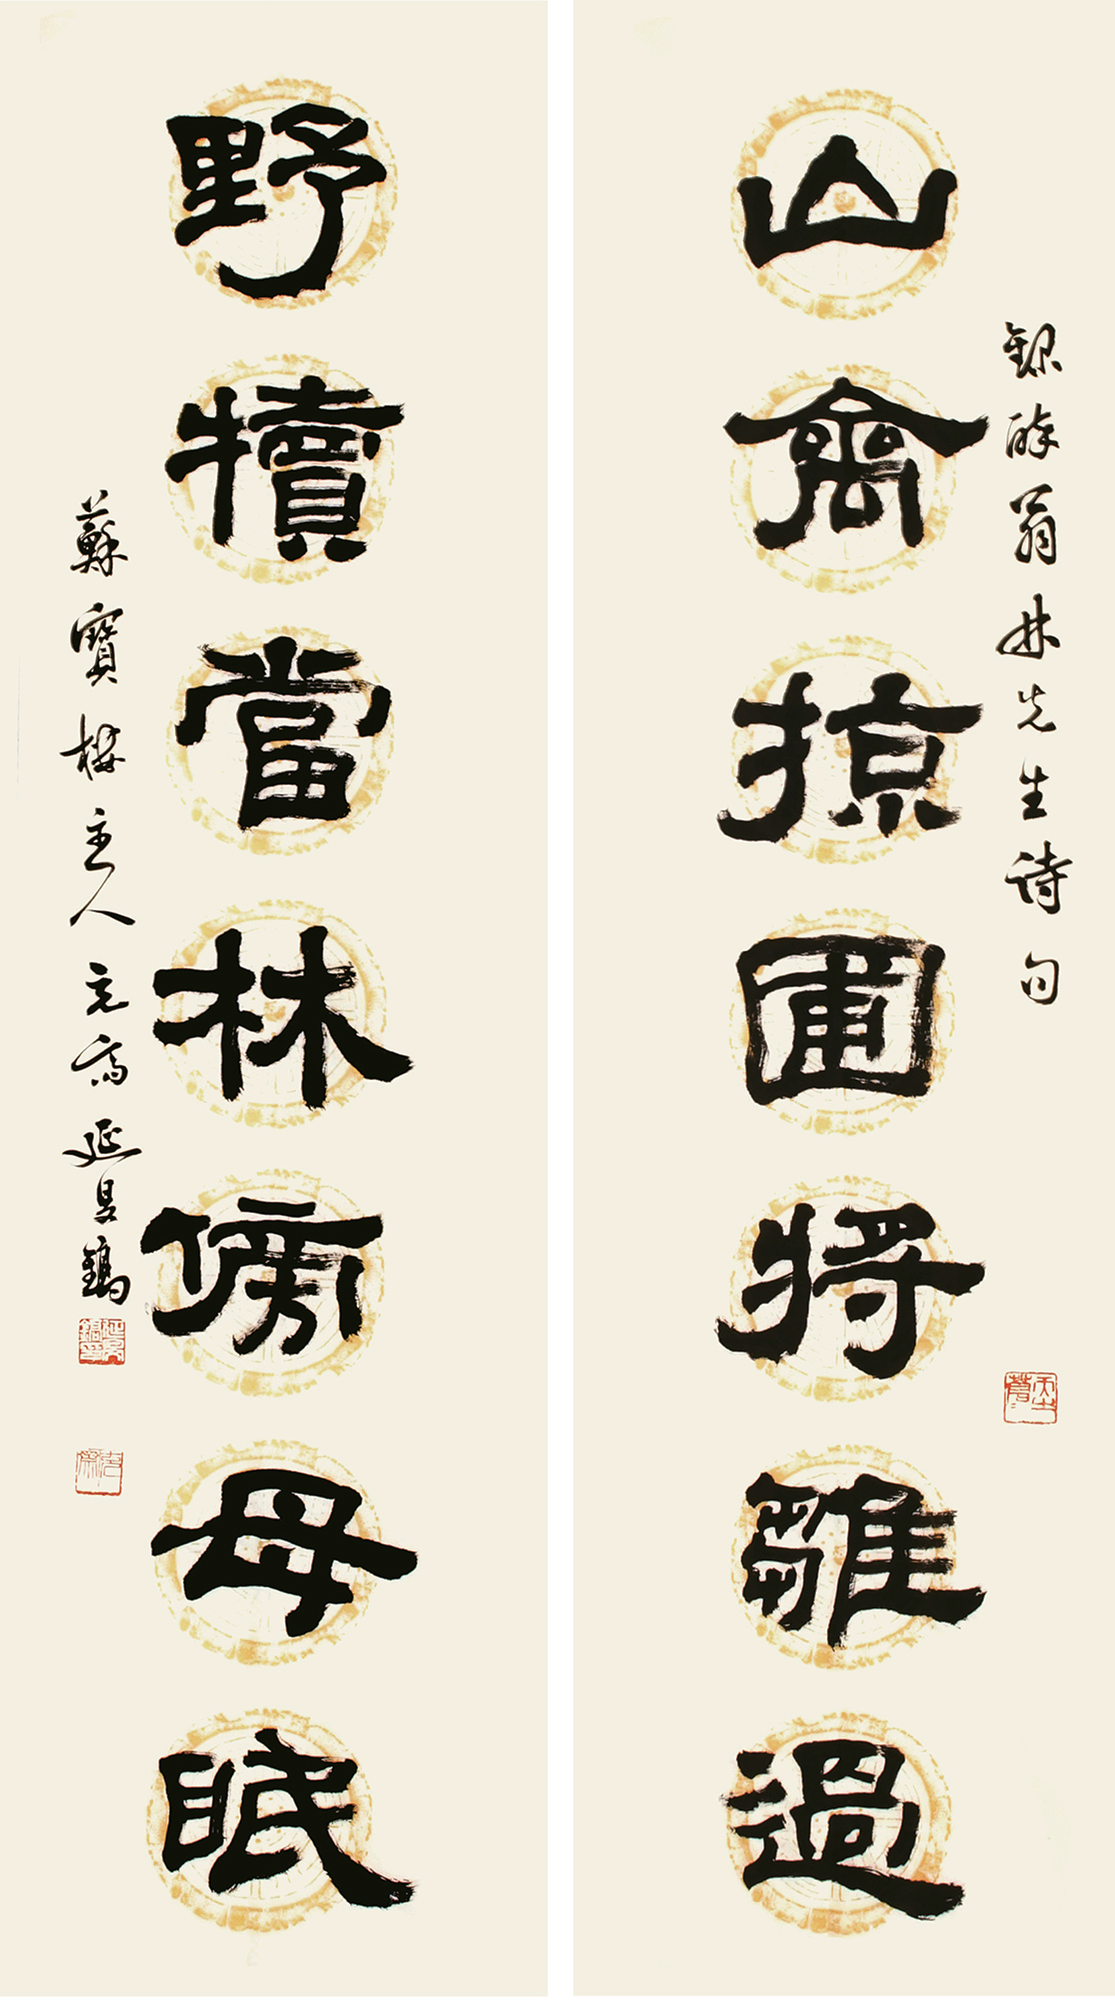 錄醉翁林先生诗句
山禽掠圃將雛過
野犢當林傍母眠
蘇寶樓主人